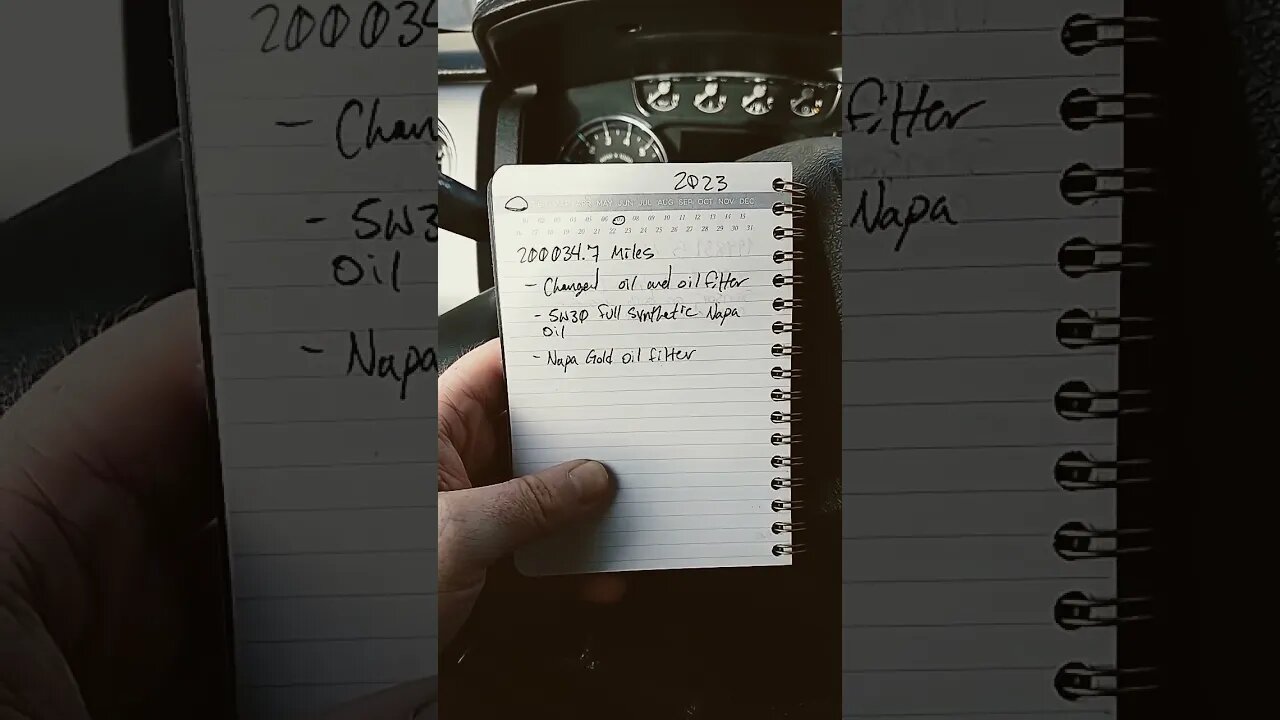 2023
APR MAY JUN JUL AUG SEP OCT NOV DEC
01 02 03 04 05 06 08 09 10 11 12 13 14 15
16 17 18 19 20 21 22 23 24 25 26 27 28 29 30 31
200034.7 Miles
- Changed oil and oil filter
- 5W30 Full Synthetic Napa
Oil
- Napa Gold oil filter